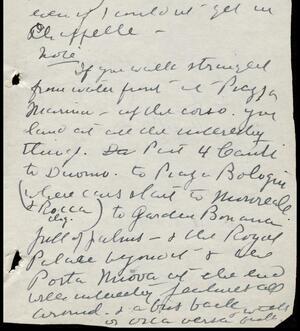 even if I could not get in
Chappelle –
Note
If you walk straight
from water front at Piazza
Marina – up the corso. you
land at all the interesting
things. Past 4 Canti
to Duomo. to Piazza Bologni
(where cars start to Monreale
& Rocca) to Garden Bonanno
full of palms – & the Royal
Palace beyond & the
Porta Nuova at the end
with interesting
around. & a bus back
or vice versa